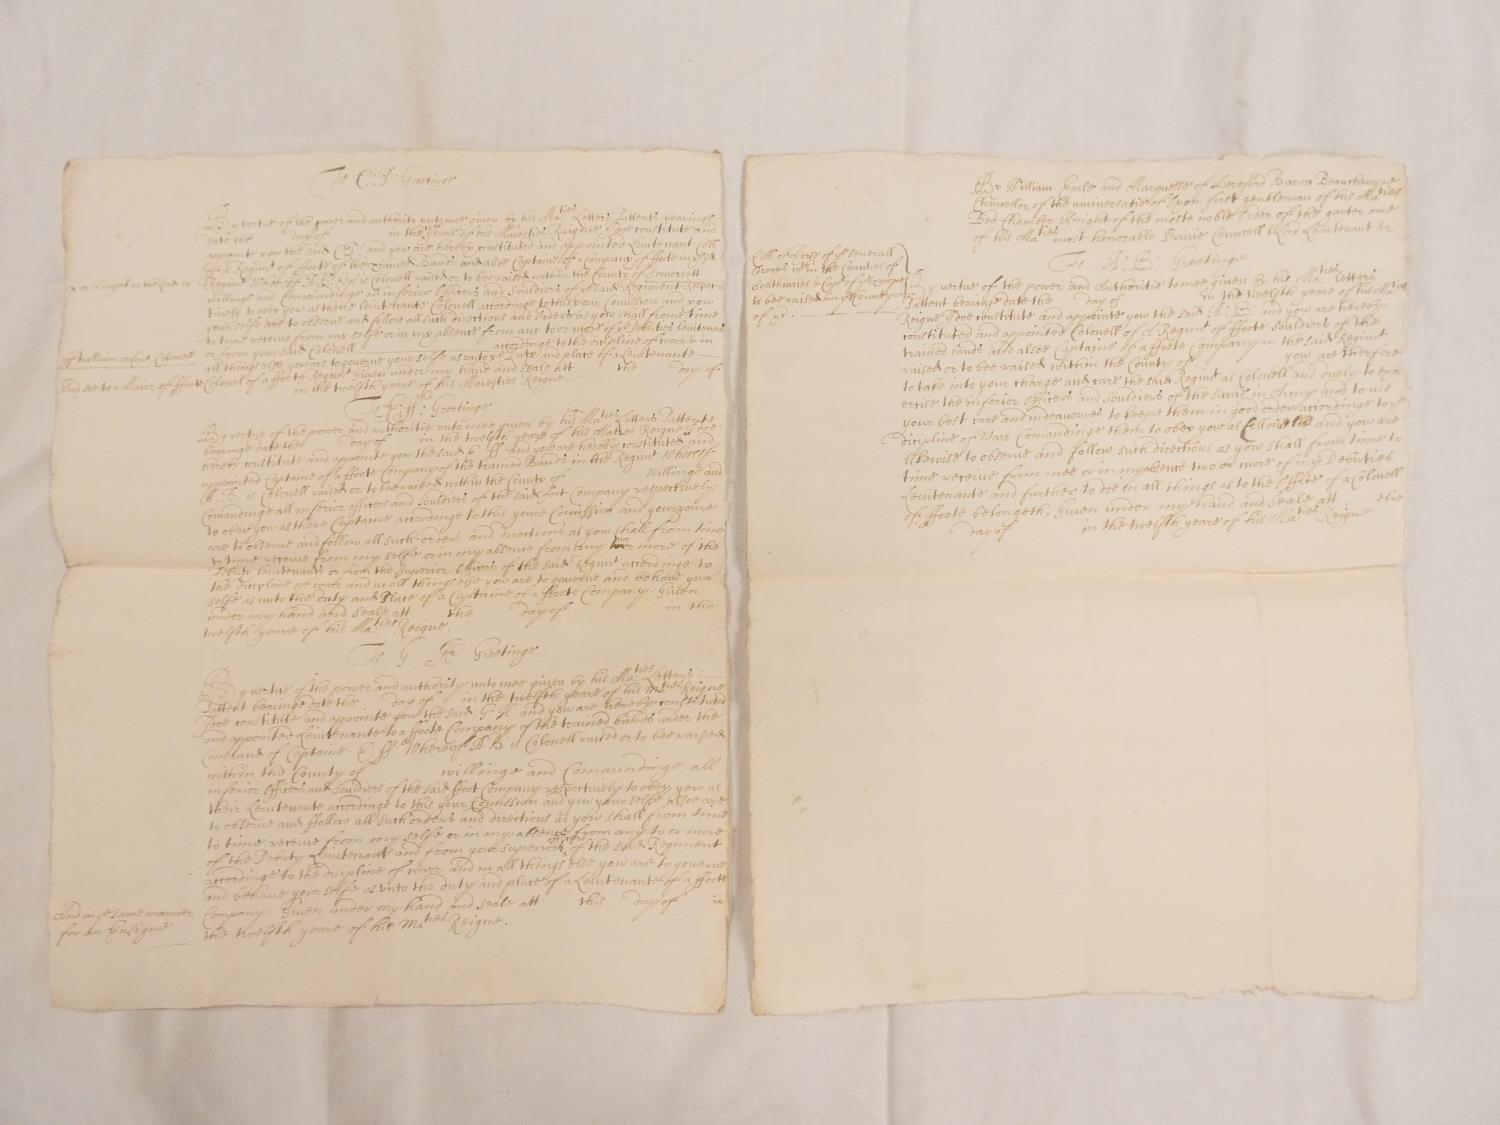 To C: D: Greetinge
By vertue of the power and authority unto mee given by his Ma:ties Letters Pattents bearinge
date the day of in the yeare of his Majesties Reigne Doe constitute and
appointe you the said C D and you are hereby constituted and appointed Lieutenant
of a Regiment of ffoote of the Trained Bands and alsoe Captaine of a company of ffoote in
Regim Whereof A: B: is Colonell raised or to bee raised within the County of Somersett
willinge and Comaundinge all inferior Officers and Souldiers of Regiment
to obey you as there Leiutenante Colonell accordinge to this your Comission and you
your selfe to observe and follow all such directions and Orders as you shall from time
to time receive from my selfe or in my absence from any two or more of Deputies Leiutenan
or from your said Colonell accordinge to the discipline of warr & in
all things else you are to governe your selfe as unto the duty and place of a Leiutenante
Colonel of a ffoote Regim Given under my hand and seale att the day of
in the twelfth yeare of his Majesties Reigne
And soe to a Maior of ffoote
To E: ff: Greetinge
By vertue of the power and authoritie unto mee given by his Ma:ties Letters Pattente
bearinge date the day of in the twelfth yeare of his Ma:ties Reigne doe
hereby constitute and appointe you the said E: ff: and you are hereby constituted and
appointed Captaine of a ffoote Company of the trained Bands in the Regimt Whereof
A B: is Colonell raised or to bee raised within the County of Willinge and
Comandinge all inferior officers and souldiers of the said foot Company respectively
to obey you as there Captaine accordinge to this youre Comission and you
are to observe and follow all such orders and directions as you shall from time
to time receive from my selfe or in my absence from any two or more of the
Deputy Leiutenants or from the Superior Officers of the said Regimt accordinge to
the discipline of warr and in all things else you are to governe and behave your
selfe as unto the duty and Place of a Captaine of a ffoote Company. Given
under my hand and seale att the day of in the
twelfth yeare of his Ma:ties Reigne.
To G: H: Greetinge
By vertue of the power and authority unto mee given by his Ma:ties Letters
Pattent bearinge date the day of in the twelfth yeare of his Ma:ties Reigne
Doe constitute and appointe you the said G H and you are hereby constituted
and appointed Leiutenante to a ffoote Company of the trained bands under the
Comand of Captaine E: ff: Whereof A B: is Colonell raised or to bee raised
within the County of willinge and Comaundinge all
inferior Officers and Souldiers of the said ffoot Company respectively to obey you as
their Leiutenante accordinge to this your Comission and you your selfe alsoe are
to observe and ffollow all such orders and directions as you shall from time
to time receive from my selfe or in my absence from any two or more
of the Deputy Leiutenants and from your superior officers of the said Regiment
accordinge to the discipline of warr and in all things else you are to governe
and behave your selfe as unto the duty and place of a Leiutenante of a ffoote
Company. Given under my hand and seale att this day of in
the twelfth yeare of his Ma:ties Reigne.
And in the same manner
for an Ensigne
By William Earle and Marquesse of Hereford Baron Beauchampe
Chancellor of the universitie of Oxon first gentleman of his Ma:ties
Bed Chamber Knight of the moste noble Order of the garter one
of his Ma:ties most honorable Privie Councell & Lord Lieutenant &c
To A: B: Greetinge
Coll of horse of severall
troops in the Counties of
Southwales & Capt of
to bee raised in Country
By vertue of the power and Authoritie to mee given by his Ma:ties Letters
Pattent bearinge date the day of in the twelfth yeare of his Ma:ties
Reigne Doe constitute and appointe you the said A: B: and you are hereby
constituted and appointed Colonell of A Regimt of ffoote souldiers of the
trained bands and alsoe Captaine of a ffoote Company in the said Regimt
raised or to bee raised within the County of you are therfore
to take into your charge and care the said Regimt as Colonell and duely to exer
ercise the inferior Officers and Souldiers of the same in Armes and to use
your best care and indeavoures to keepe them in good order accordinge to ye
discipline of Warr Comandinge them to obey you as Collonell and you are
likewise to observe and follow such directions as you shall from time to
time receive from mee or in my absence two or more of my Debuties
Leiutenante and further to doe in all things as to the Office of a Colonell
of ffoote belongeth, Given under my hand and seale att the
day of in the twelfth yeare of his Ma:ties Reigne